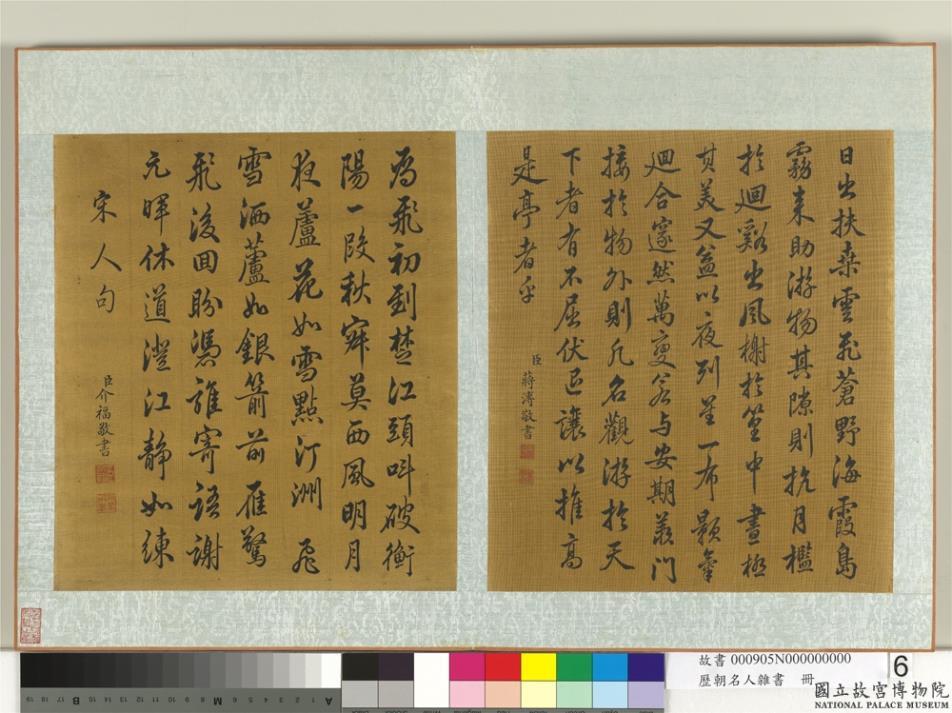 日出扶桑雲飛蒼野海霞島
霧來助游物其隙則抗月檻
於迴谿出風榭於篁中晝極
其美又益以夜列星下布顥氣
迴合邃然萬變若与安期羨門
接於物外則凡名觀游於天
下者有不屈伏退讓以推高
是亭者乎
臣蔣溥敬書
鴈飛初到楚江頭叫破衡
陽一段秋寂莫西風明月
夜蘆花如雪點汀洲 飛
雪洒蘆如銀箭前雁驚
飛後回盼憑誰寄語謝
元暉休道澄江靜如練
宋人句
臣介福敬書
故書 000905N000000000
歷朝名人雜書 冊
6
國立故宮博物院
NATIONAL PALACE MUSEUM